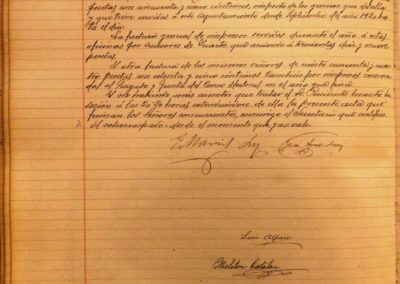 pesetas con cincuenta y cinco céntimos, importe de los géneros que detalla
y que tiene servidos a este Ayuntamiento desde Septiembre del año 1920 hasta
el día.
La factura general de impresos servidos durante el año a estas
oficinas por Sucesores de que asciende a trescientas diez y nueve
pesetas.
Y otra factura de los mismos señores de ciento cuarenta y cua-
tro pesetas con setenta y cinco céntimos también por impresos servi-
dos al Juzgado y Junta del Censo Electoral en el año que fina.
Y no habiendo más asuntos que tratar el Sr. Presidente levantó la
sesión a las horas extendiéndose de ella la presente acta que
firman los Señores concurrentes, conmigo el Secretario que certifico.
El - desde el momento que, = no vale.
Luis Alfaro
Meliton Catalan